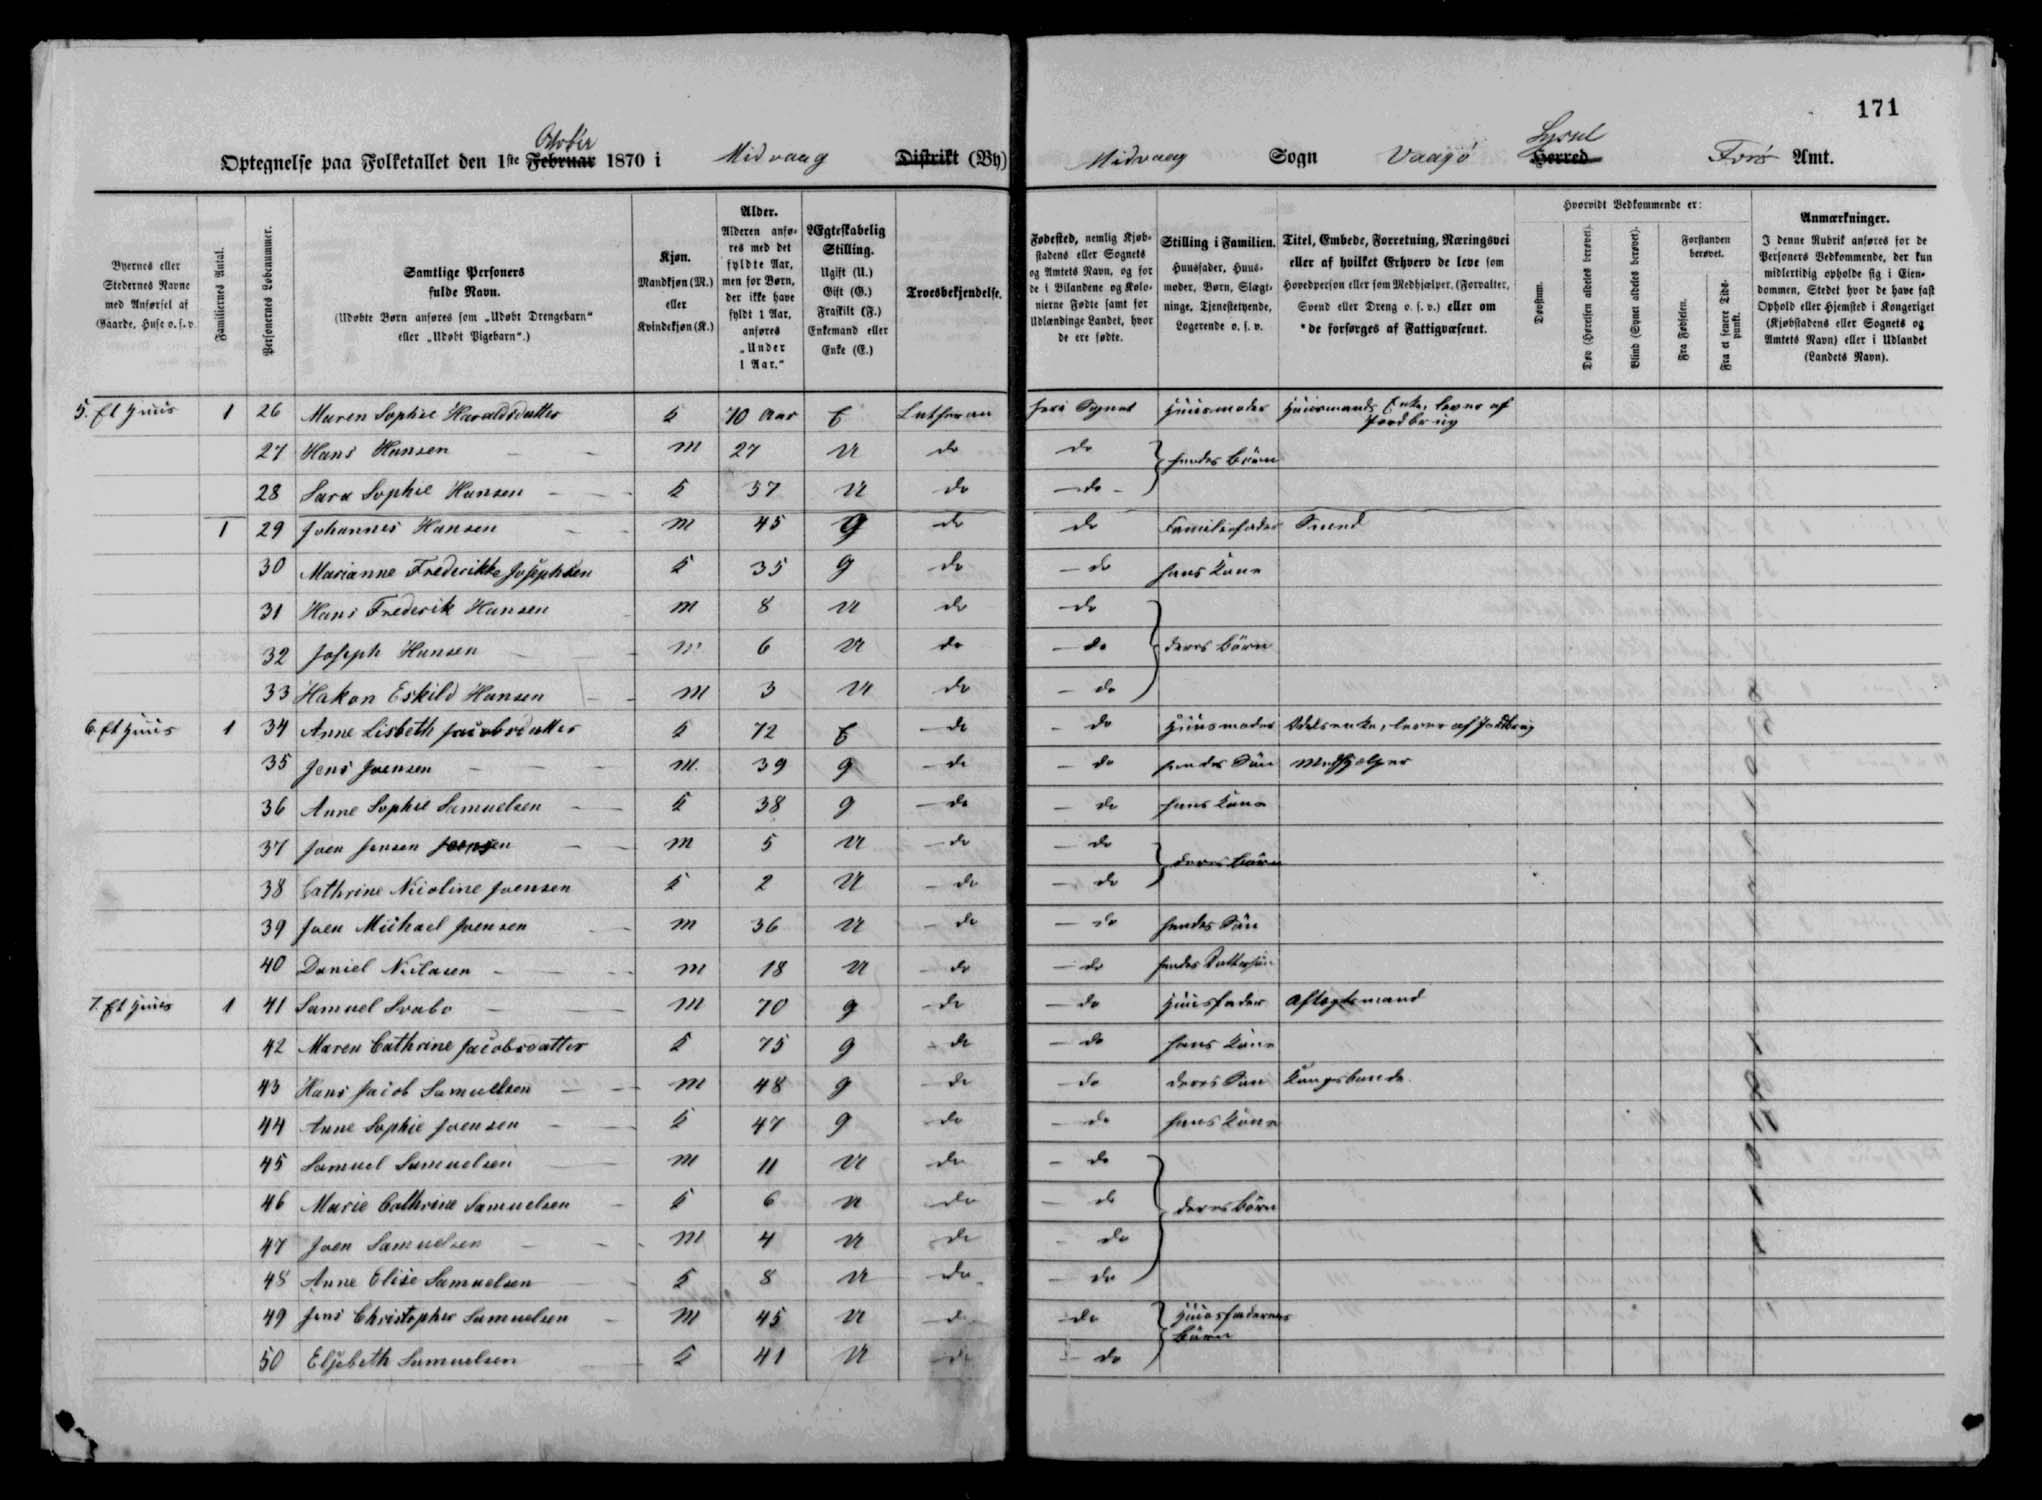 171
Optegnelse paa Folketallet den 1ste Februar October 1870 i Midvaag Distrikt (By) Midvaag Sogn Vaagø Herred Syssel Færø Amt.
Byernes eller Stedernes Navne med Anførsel af Gaarde, Huse o. s. v.
Familiernes Antal.
Personernes Løbenummer.
Samtlige Personers fulde Navn.
(Udøbte Børn anføres som „Udøbt Drengebarn“ eller „Udøbt Pigebarn“.)
Kjøn.
Mandkjøn (M.) eller Kvindekjøn (K.)
Alder.
Alderen anføres med det fyldte Aar, men for Børn, der ikke have fyldt 1 Aar, anføres „Under 1 Aar.“
Ægteskabelig Stilling.
Ugift (U.) Gift (G.) Fraskilt (F.) Enkemand eller Enke (E.)
Troesbekjendelse.
Fødested, nemlig Kjøbstadens eller Sognets og Amtets Navn, og for de i Bilandene og Kolonierne Fødte samt for Udlændinge Landet, hvor de ere fødte.
Stilling i Familien.
Huusfader, Huusmoder, Børn, Slægtninge, Tjenestetyende, Logerende o. s. v.
Titel, Embede, Forretning, Næringsvei eller af hvilket Erhverv de leve som Hovedperson eller som Medhjælper, (Forvalter, Svend eller Dreng o. s. v.) eller om *de forsørges af Fattigvæsenet.
Hvorvidt Vedkommende er:
Døvstum.
Døv (Hørelsen aldeles berøvet).
Blind (Synet aldeles berøvet).
Forstanden berøvet.
Fra Fødselen.
Fra et senere Tidspunkt.
Anmærkninger.
I denne Rubrik anføres for de Personers Vedkommende, der kun midlertidig opholde sig i Eiendommen, Stedet hvor de have fast Ophold eller Hjemsted i Kongeriget (Kjøbstadens eller Sognets og Amtets Navn) eller i Udlandet (Landets Navn).
5. Et Huus 1 26 Maren Sophie Haraldsdatter K 70 Aar E Lutheran her i Sognet Huusmoder Huusmands Enke, lever af Jordbrug
27 Hans Hansen M 27 U do do hendes Børn
28 Sara Sophie Hansen K 37 U do do
1 29 Johannes Hansen M 45 G do do Familiefader Smed
30 Marianne Frederikke Josephsen K 35 G do do hans Kone
31 Hans Frederik Hansen M 8 U do do
32 Joseph Hansen M 6 U do do deres Børn
33 Hakon Eskild Hansen M 3 U do do
6. Et Huus 1 34 Anne Lisbeth Jacobsdatter K 72 E do do Huusmoder Odelsenke, lever af Jordbrug
35 Jens Joensen M. 39 G do do hendes Søn Medhjelper
36 Anne Sophie Samuelsen K 38 G do do hans Kone
37 Joen Jensen Joensen M 5 U do do deres Børn
38 Cathrine Nicoline Joensen K 2 U do do
39 Joen Michael Joensen M 36 U do do hendes Søn
40 Daniel Niclasen M 18 U do do hendes Dattersøn
7. Et Huus 1 41 Samuel Svabo M 70 G do do Huusfader Aftægtsmand
42 Maren Cathrine Jacobsdatter K 75 G do do hans Kone
43 Hans Jacob Samuelsen M 48 G do do deres Søn Kongsbonde
44 Anne Sophie Joensen K 47 G do do hans Kone
45 Samuel Samuelsen M 11 U do do
46 Marie Cathrine Samuelsen K 6 U do do deres Børn
47 Joen Samuelsen M 4 U do do
48 Anne Elise Samuelsen K 8 U do do
49 Jens Christopher Samuelsen M 45 U do do Huusfaderens Børn
50 Elsebeth Samuelsen K 41 U do do